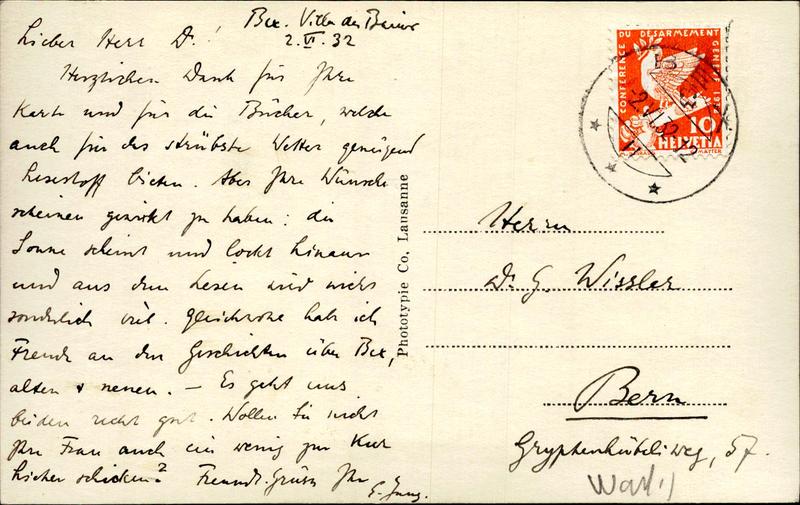 Bex. Villa des Bains
2.VI.32
Lieber Herr Dr.!
Herzlichen Dank für Ihre
Karte und für die Bücher, welche
auch für das strübste Wetter genügend
Lesestoff bieten. Aber Ihre Wünsche
scheinen gewirkt zu haben: die
Sonne scheint und lockt hinaus
und aus dem Lesen wird nicht
sonderlich viel. Gleichwohl hab ich
Freude an den Geschichten über Bex,
alten & neuen. — Es geht uns
beiden recht gut. Wollen Sie nicht
Ihre Frau auch ein wenig zur Kur
hieher schicken? Freundl. Grüsse Ihr
Phototypie Co, Lausanne
CONFERENCE DU DESARMEMENT GENEVE
10
HELVETIA
-2.VI.32-12
Herrn
Dr. G. Wissler
Bern
Gryphenhübeliweg, 57.